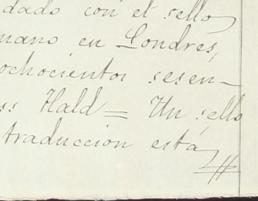 dado con el sello
mano en Londres,
ochocientos sesen-
ss Hald = Un sello
traduccion está